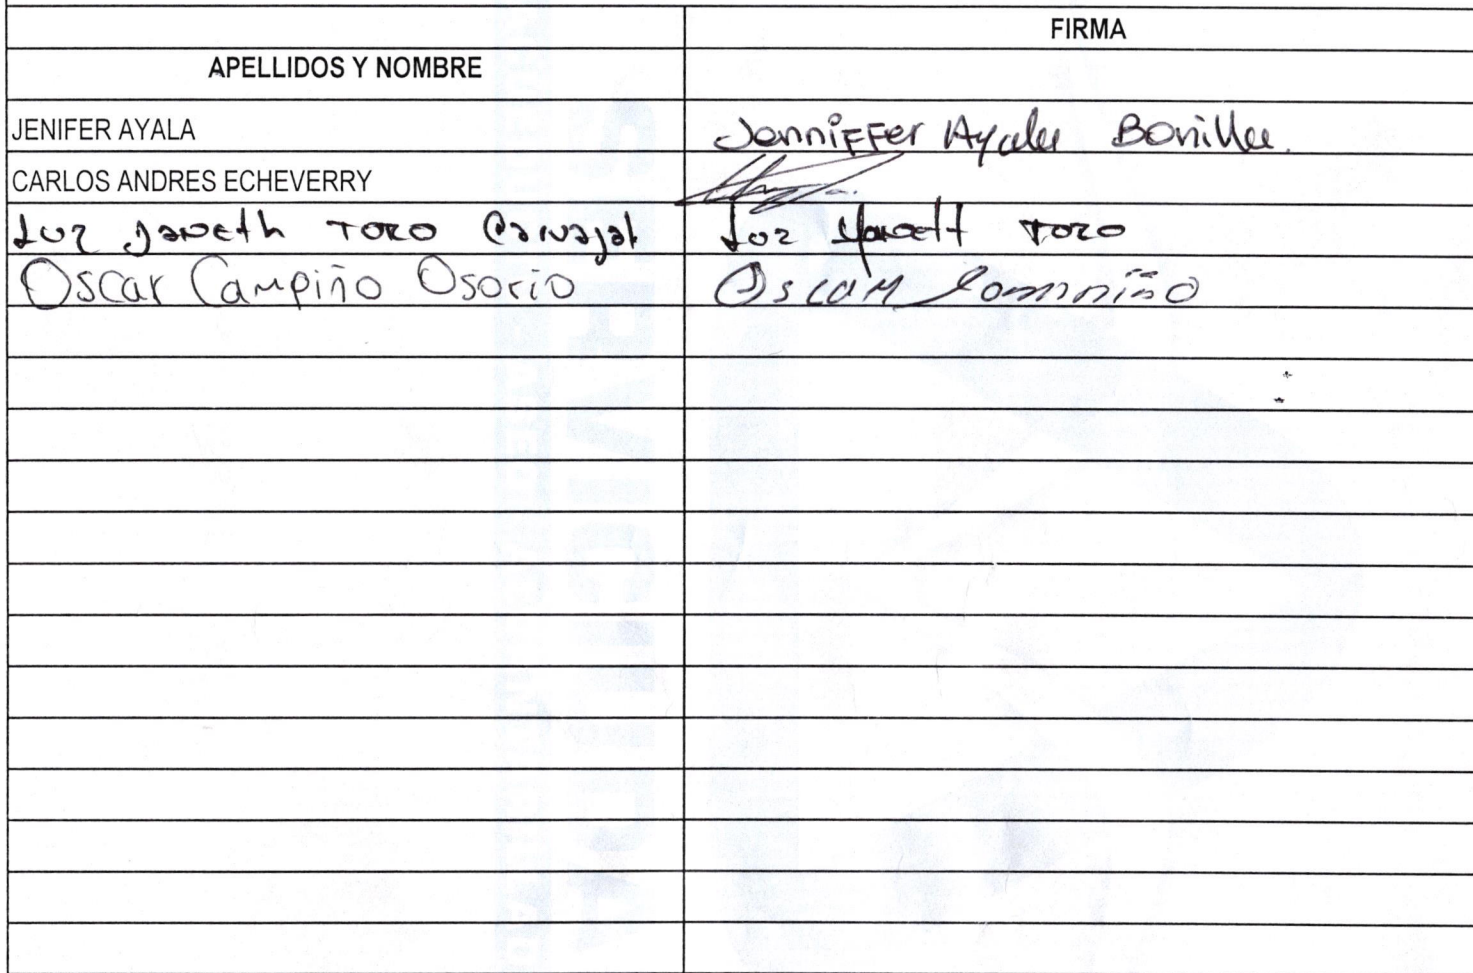 FIRMA
APELLIDOS Y NOMBRE
JENIFER AYALA Jenniffer Ayala Bonilla.
CARLOS ANDRES ECHEVERRY
Luz Janeth TORO Carvajal Luz Janeth TORO
Oscar Campiño Osorio Oscar Campiño